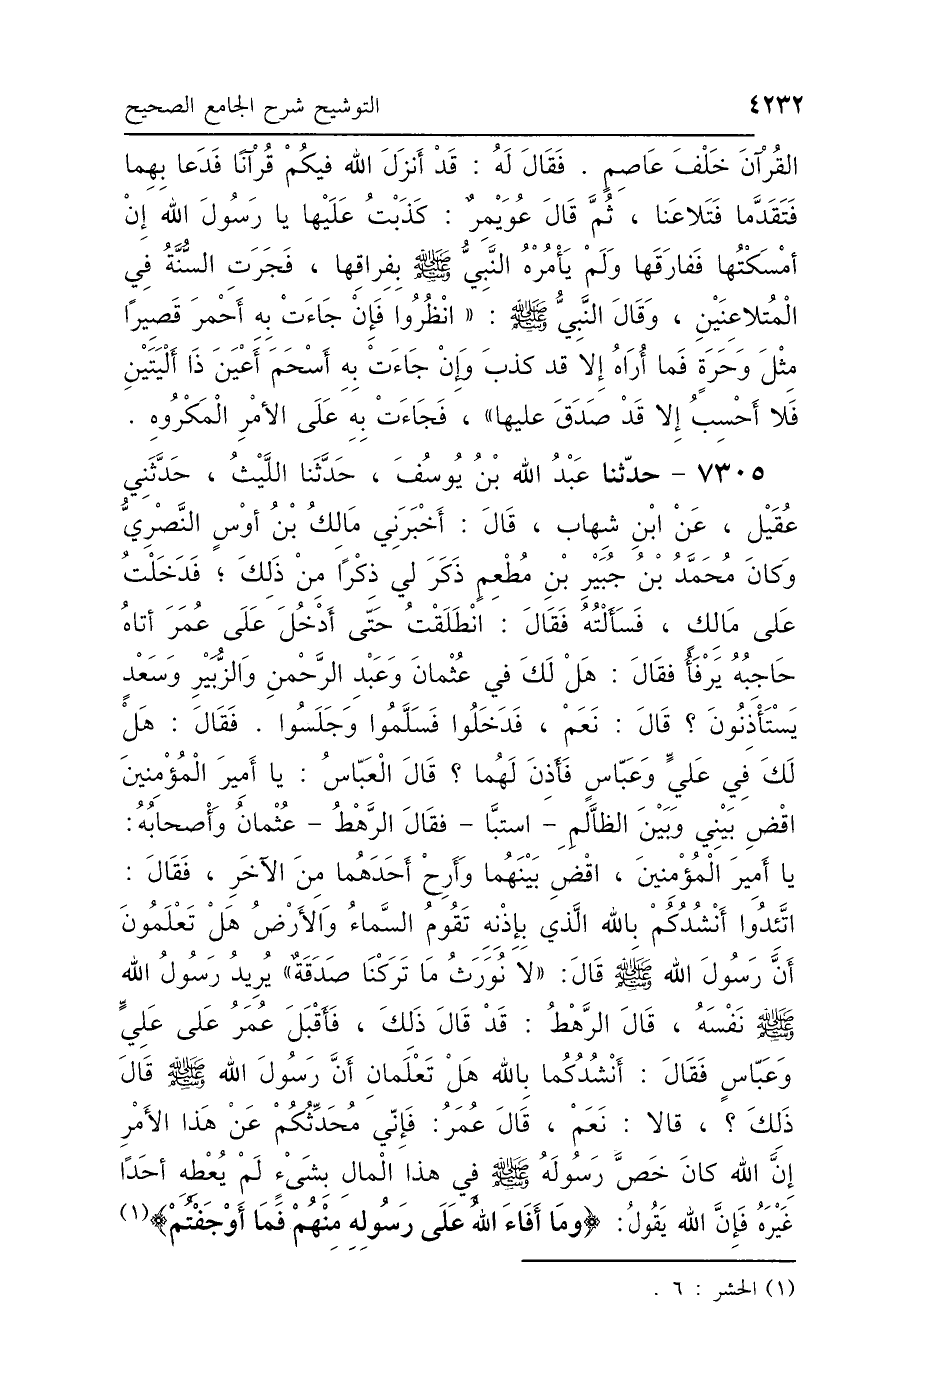 ٤٢٣٢ التوشيح شرح الجامع الصحيح
القُرْآنَ خَلْفَ عَاصِمٍ . فَقَالَ لَهُ : قَدْ أَنزَلَ الله فيكُمْ قُرْآنًا فَدَعا بِهِما
فَتَقَدَّما فَتَلاعَنا ، ثُمَّ قالَ عُوَيْمِرٌ : كَذَبْتُ عَلَيْها يا رَسُولَ الله إنْ
أمْسَكْتُها فَفارَقَها ولَمْ يَأْمُرْهُ النَّبِيُّ ﷺ بِفِراقِها ، فَجَرَتِ السُّنَّةُ فِي
الْمُتلاعِنَيْنِ ، وَقَالَ النَّبِيُّ ﷺ : « انْظُرُوا فَإنْ جَاءَتْ بِهِ أَحْمرَ قَصِيرًا
مِثْلَ وَحَرَةٍ فَما أُرَاهُ إلا قد كذبَ وَإنْ جاءَتْ بِهِ أَسْحَمَ أَعْيَنَ ذَا أَلْيَتَيْنِ
فَلا أَحْسِبُ إلا قَدْ صَدَقَ عليها» ، فَجَاءَتْ بِهِ عَلَى الأمْرِ الْمَكْرُوهِ .
٧٣٠٥ – حدّثنا عَبْدُ الله بْنُ يُوسُفَ ، حَدَّثَنا اللَّيْثُ ، حَدَّثَنِي
عُقَيْلٌ ، عَنْ ابْنِ شهاب ، قَالَ : أَخْبَرَنِي مَالكُ بْنُ أوْسٍ النَّصْرِيُّ
وَكانَ مُحَمَّدُ بْنُ جُبَيْرِ بْنِ مُطْعِمٍ ذَكَرَ لي ذِكْرًا مِنْ ذَلِكَ ؛ فَدَخَلْتُ
عَلى مَالِكٍ ، فَسَأَلْتُهُ فَقَالَ : انْطَلَقْتُ حَتَّى أَدْخُلَ عَلَى عُمَرَ أتاهُ
حَاجِبُهُ يَرْفَأُ فقالَ : هَلْ لَكَ في عُثْمانَ وَعَبْدِ الرَّحْمنِ وَالزُّبَيْرِ وَسَعْدٍ
يَسْتَأْذِنُونَ ؟ قَالَ : نَعَمْ ، فَدَخَلُوا فَسَلَّمُوا وَجَلَسُوا . فَقَالَ : هَلْ
لَكَ فِي عَلِيٍّ وَعَبّاسٍ فَأَذِنَ لَهُما ؟ قالَ الْعَبّاسُ : يا أَمِيرَ الْمُؤْمِنِينَ
اقْضِ بَيْنِي وَبَيْنَ الظاَّلِمِ – استبَّا – فقَالَ الرَّهْطُ – عثْمانُ وأَصْحابُهُ:
يا أَمِيرَ الْمُؤْمِنِينَ ، اقْضِ بَيْنَهُما وَأَرِحْ أحَدَهُما مِنَ الآخَرِ ، فَقَالَ :
اتَّئِدُوا أَنْشُدُكُمْ بِالله الَّذي بِإذْنِهِ تَقُومُ السَّماءُ وَالأَرْضُ هَلْ تَعْلَمُونَ
أَنَّ رَسُولَ الله ﷺ قَالَ: «لا نُورَثُ مَا تَرَكْنَا صَدَقَةٌ» يُرِيدُ رَسُولُ الله
ﷺ نَفْسَهُ ، قَالَ الرَّهْطُ : قَدْ قالَ ذَلِكَ ، فَأقْبَلَ عُمَرُ عَلى عَلِيٍّ
وَعَبَّاسٍ فَقَالَ : أَنْشُدُكُما بِالله هَلْ تَعْلَمانِ أنَّ رَسُولَ الله ﷺ قَالَ
ذَلِكَ ؟ ، قالا : نَعَمْ ، قَالَ عُمَرُ: فَإنّي مُحَدِّثُكُمْ عَنْ هَذا الأمْرِ
إنَّ الله كانَ خَصَّ رَسُولَهُ ﷺ فِي هذا الْمالِ بِشَيْءٍ لَمْ يُعْطِهِ أحَدًا
غَيْرَهُ فَإنَّ الله يَقُولُ: ﴿وما أَفَاءَ اللهُ عَلَى رَسُولِهِ مِنْهُمْ فَمَا أَوْجَفْتُمْ﴾(١)
(١) الحشر : ٦ .